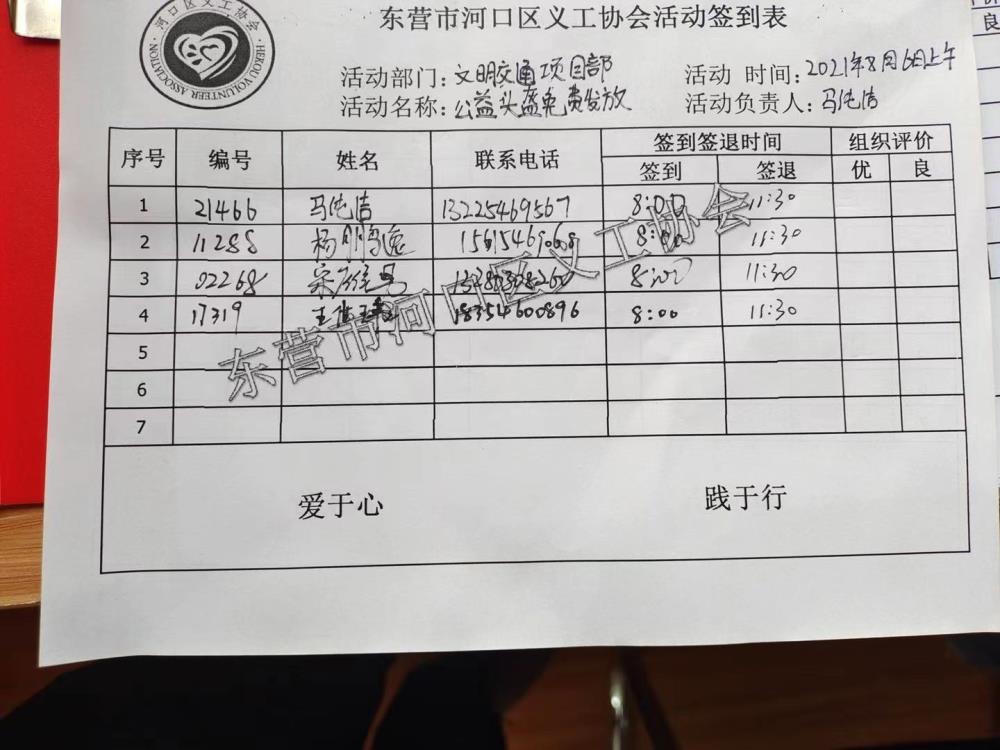 河口区义工协会
HEKOU VOLUNTEER ASSOCIATION
东营市河口区义工协会活动签到表
活动部门：文明交通项目部 活动 时间：2021年8月6日上午
活动名称：公益头盔免费发放 活动负责人：马纯洁
序号 编号 姓名 联系电话 签到签退时间 组织评价
签到 签退 优 良
1 21466 马纯洁 13225469567 8:00 11:30
2 11288 杨 8:00 11:30
3 02268 宋 8:00 11:30
4 17319 王 18354600896 8:00 11:30
5
6
7
东营市河口区义工协会
爱于心 践于行
良